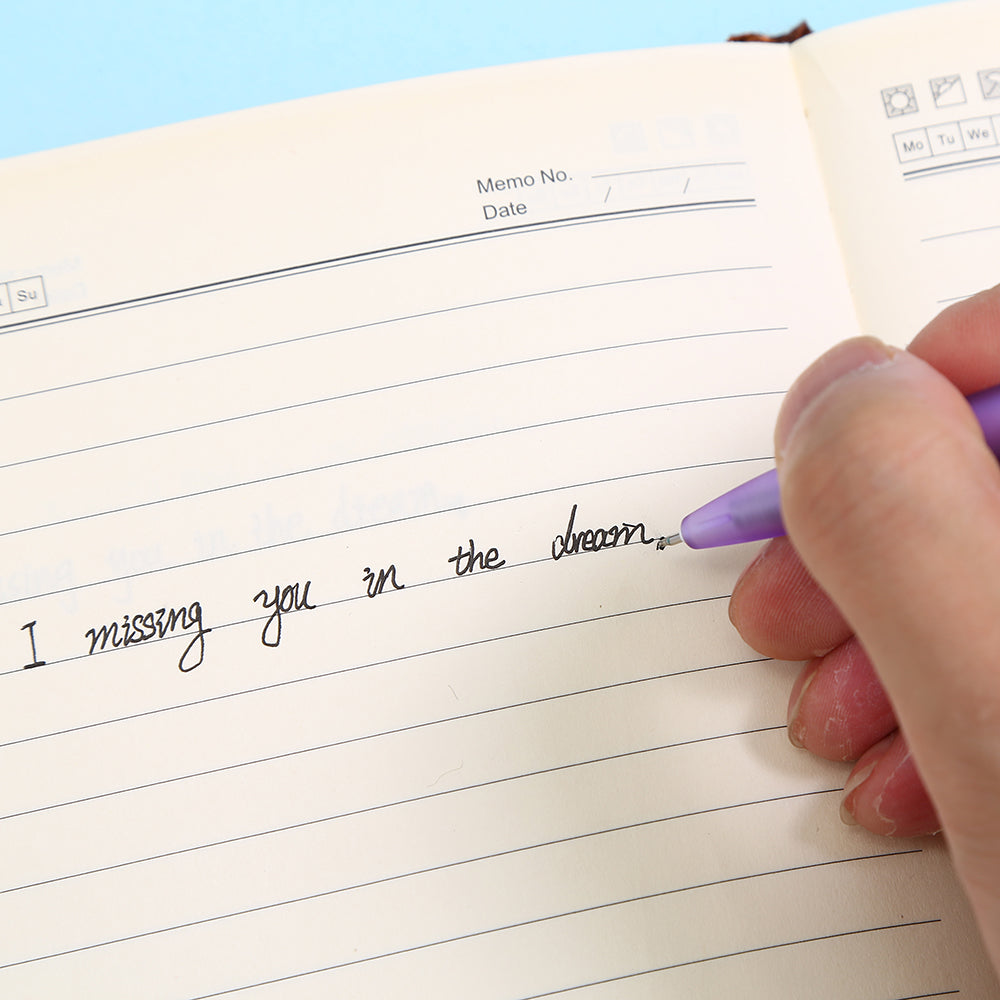 Memo No.
Date / /
Su
Mo Tu We
I missing you in the dream.